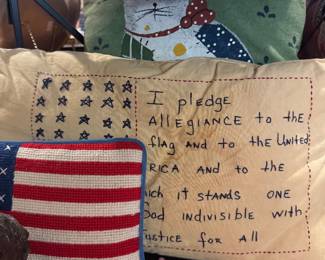 I pledge
ALLEGIANCE to the
flag and to the UNITED
RICA and to the
ich it STANDS ONE
God indivisible with
justice for All